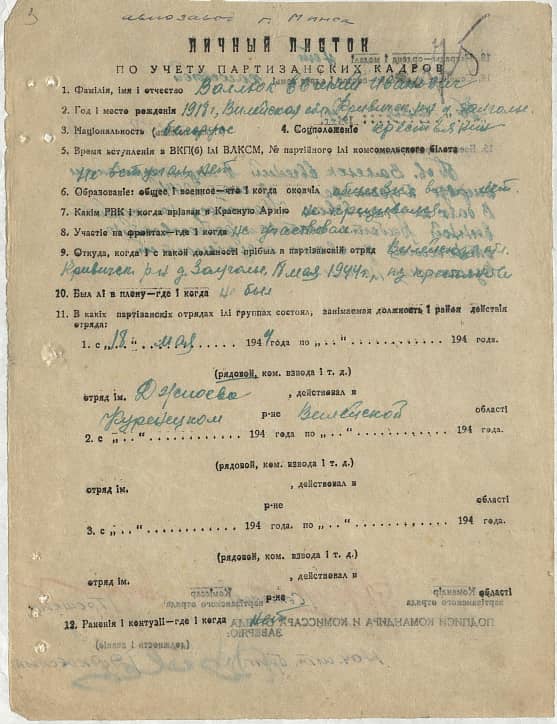 автозавод г. Минск
ЛИЧНЫЙ ЛИСТОК
ПО УЧЕТУ ПАРТИЗАНСКИХ КАДРОВ
1. Фамілія, імя і отчество Валлюк Евгений Иванович
2. Год і место рожденія 1918 г., Вилейская обл. Кривичск. р-н д. Залголы
3. Національность белорус 4. Соцположеніе крестьянин
5. Время вступленія в ВКП(б) ілі ВЛКСМ, № партійного ілі комсомольского білета
не вступал, нет
6. Образованіе: общее і военное—что і когда окончіл
7. Какім РВК і когда прізван в Красную Армію не призывался
8. Участіе на фронтах—где і когда не участвовал
9. Откуда, когда і с какой должності прібыл в партізанскій отряд Вилейская обл.
Кривичск. р-н д. Залголы, 17 мая 1944 г., из крестьянов
10. Был лі в плену—где і когда не был
11. В какіх партізанскіх отрядах ілі группах состоял, занімаемая должность і район действія
отряда:
1. с „18“ мая 1944 года по „..“ 194 года.
(рядовой, ком. взвода і т. д.)
отряд ім. Джиоева , действовал в
Куренецком р-не Вилейской області
2. с „..“ 194 года по „..“ 194 года.
(рядовой, ком. взвода і т. д.)
отряд ім. , действовал в
р-не області
3. с „..“ 194 года. по „..“ 194 года.
(рядовой, ком. взвода і т. д.)
отряд ім. , действовал в
р-не області
12. Раненія і контузіі—где і когда нет